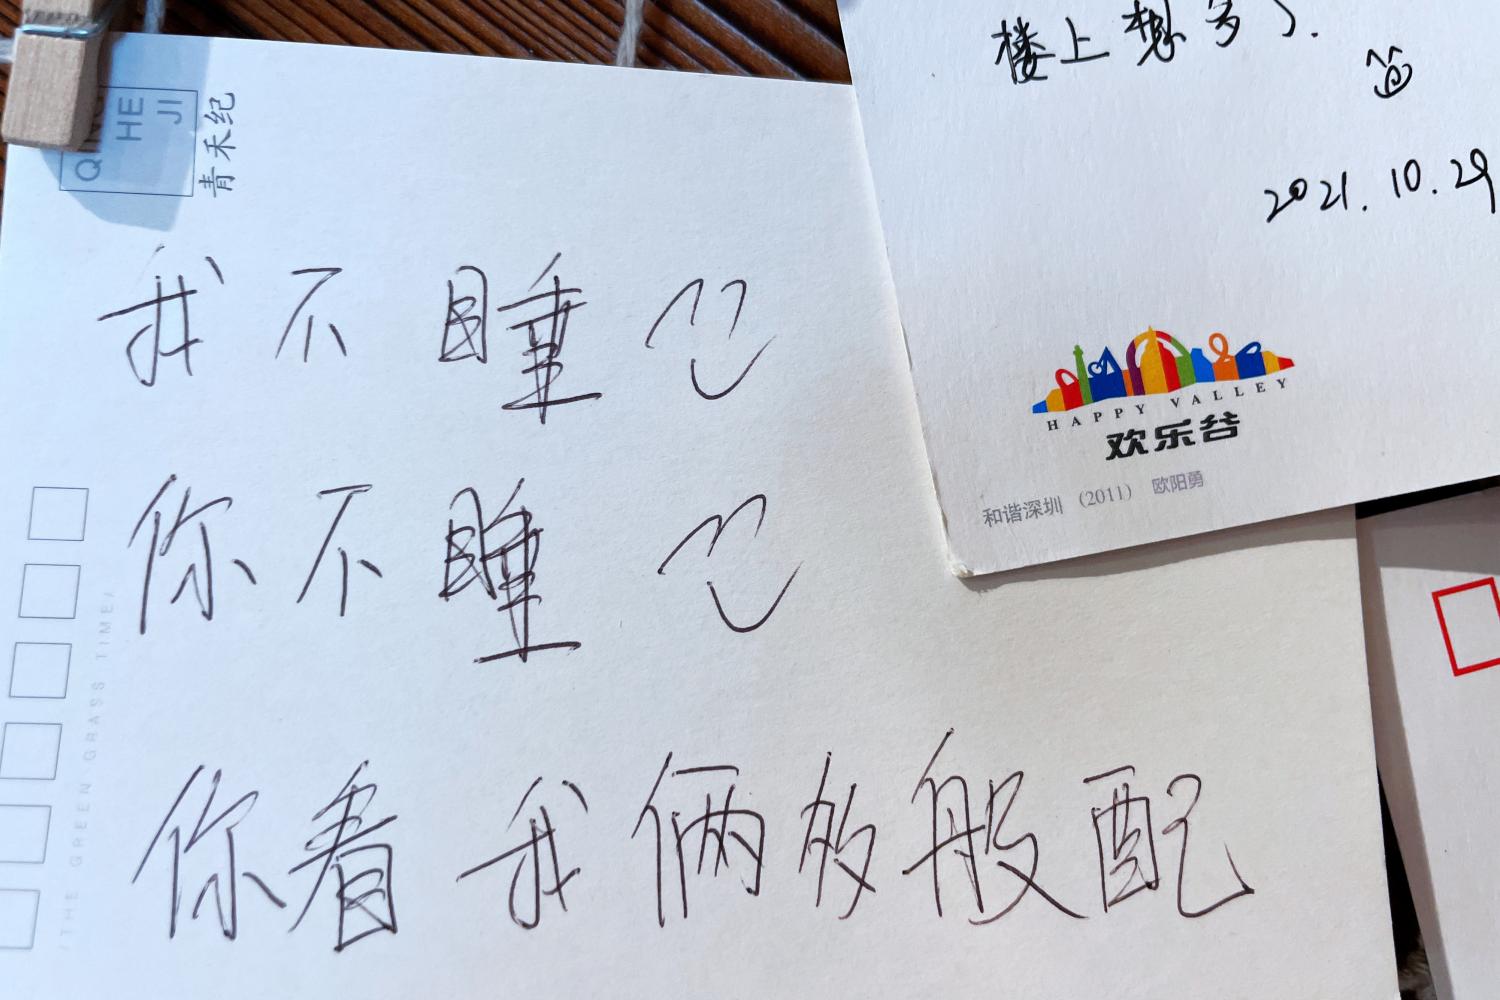 HE
JI
青禾纪
我不睡
你不睡
你看我俩多般配
/THE GREEN GRASS TIME/
楼上想多了.
2021.10.29
HAPPY VALLEY
欢乐谷
和谐深圳 (2011) 欧阳勇